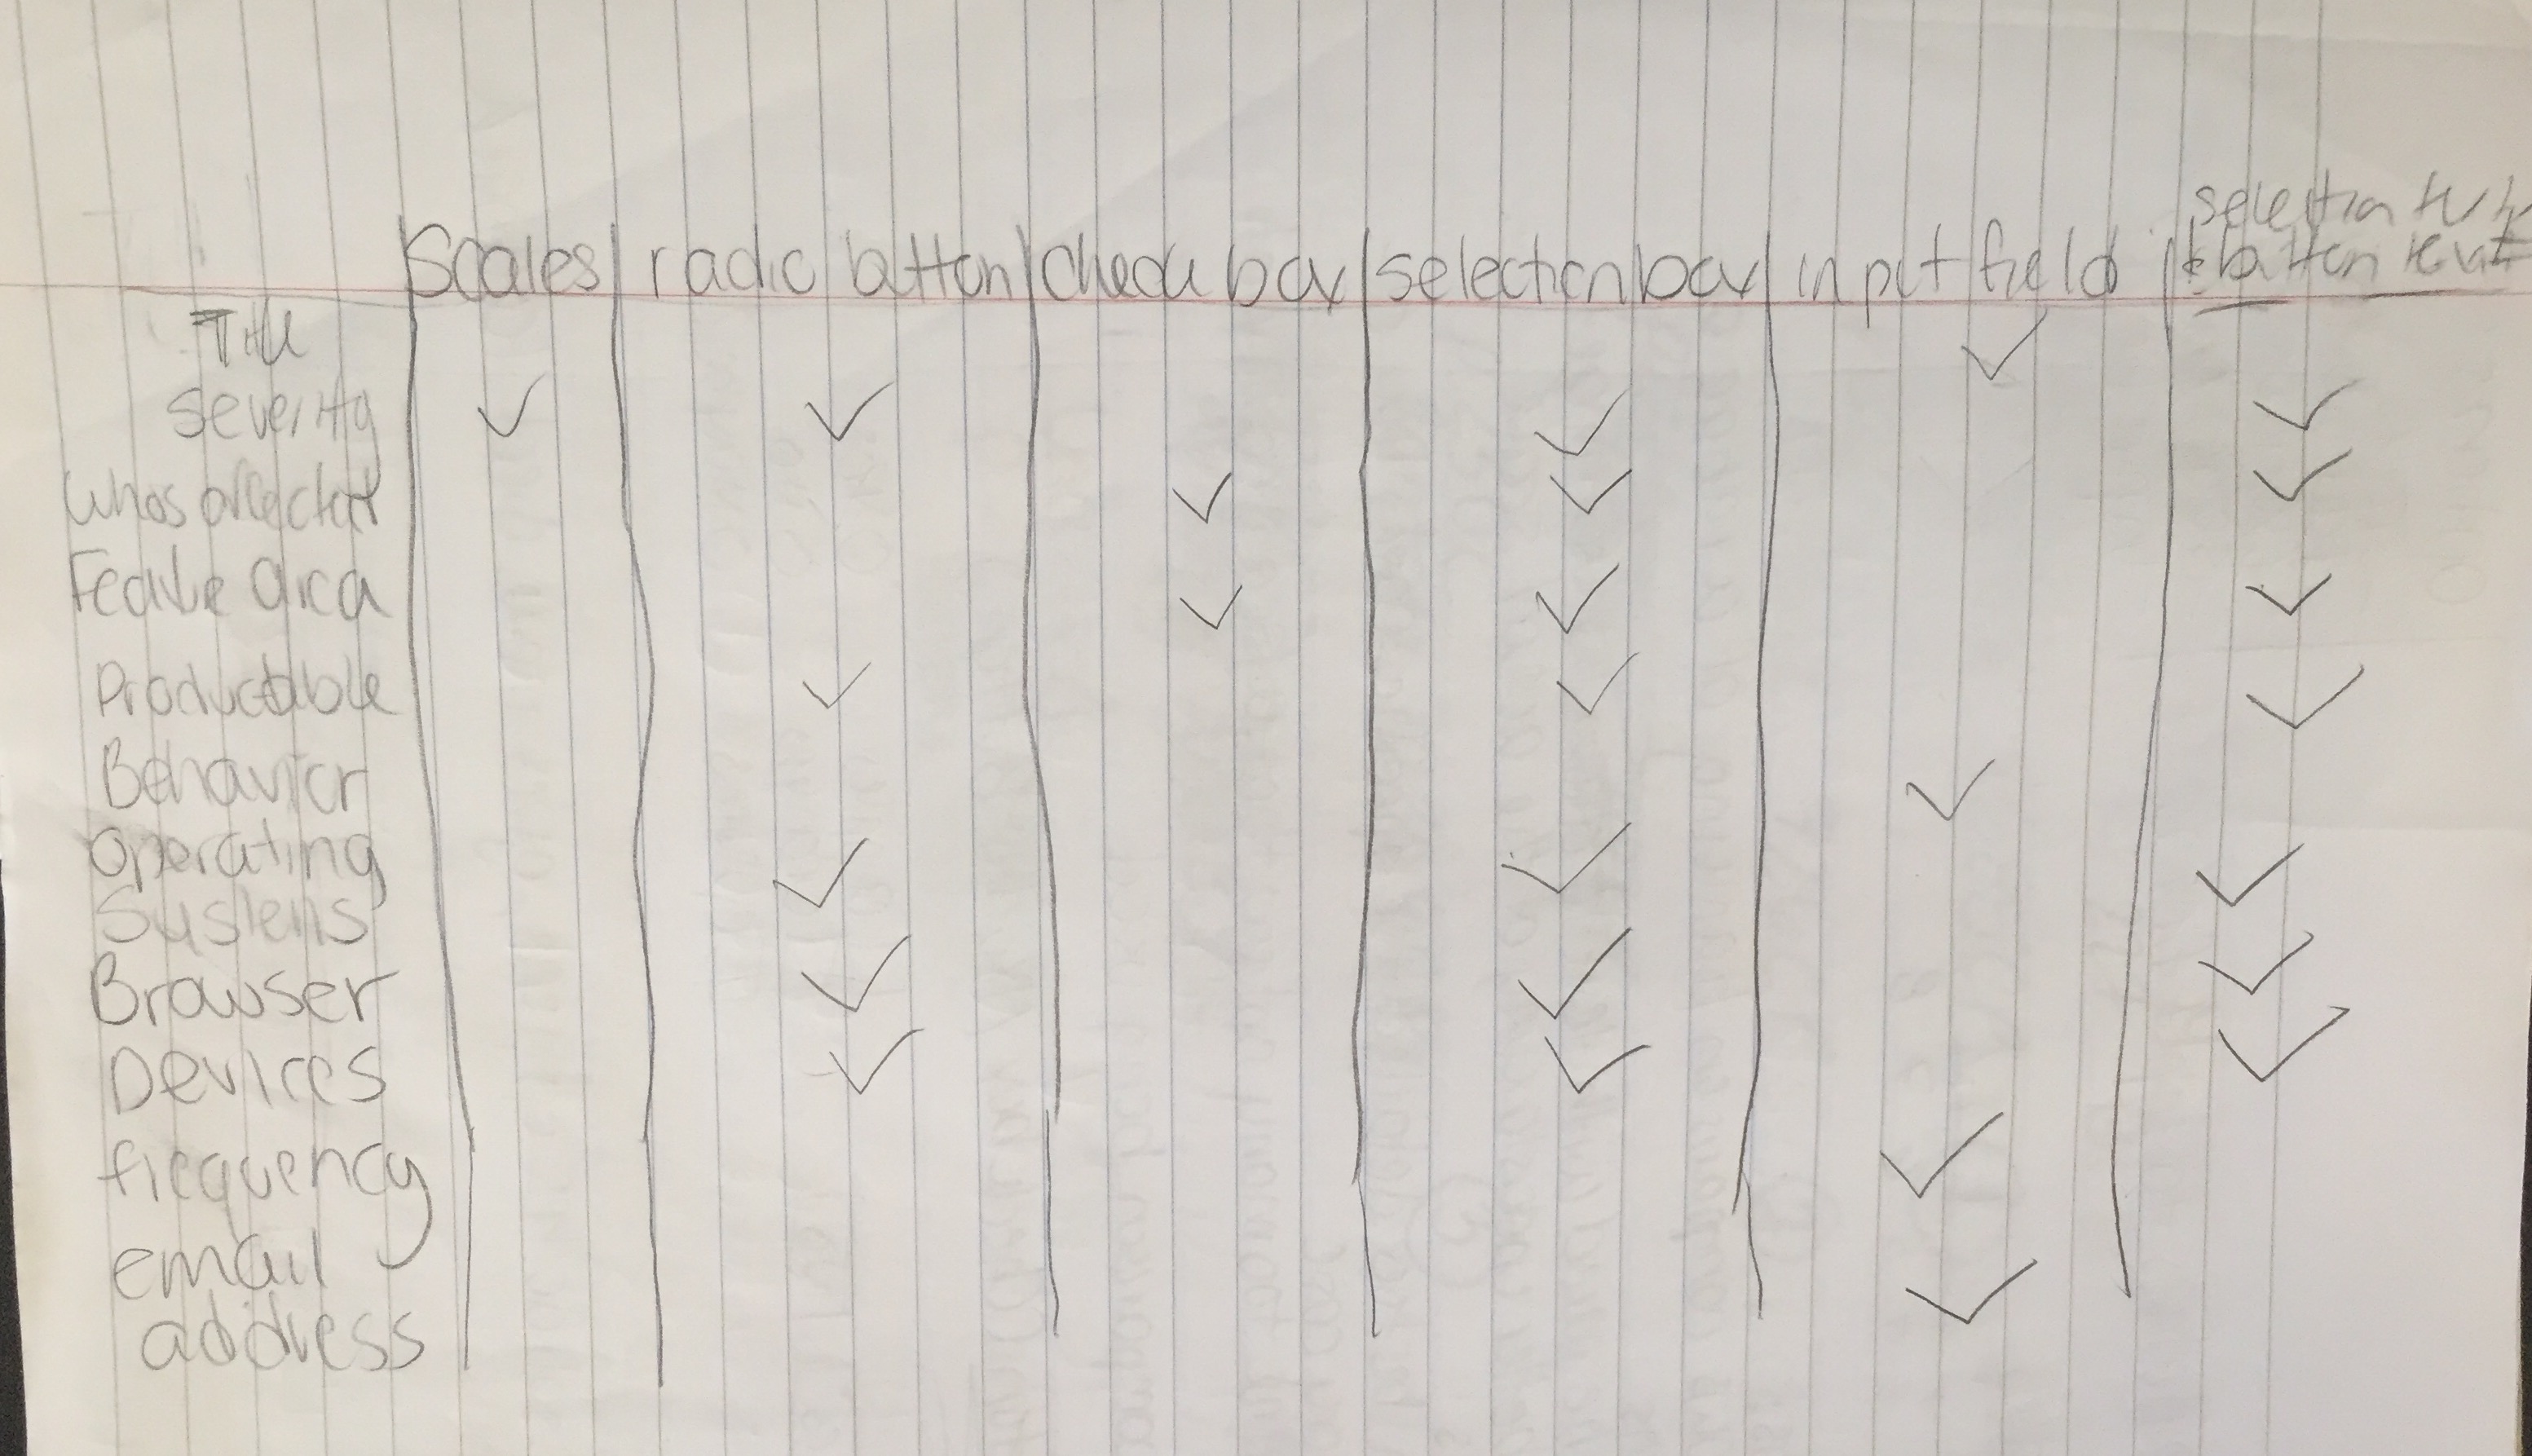 Scales radio button check box selection box input field selection
button
Title ✓
severity ✓ ✓ ✓ ✓
whos affected ✓ ✓ ✓
Feature area ✓ ✓ ✓
Productable ✓ ✓ ✓
Behavior ✓
operating ✓ ✓ ✓
Systems
Browser ✓ ✓ ✓
Devices ✓ ✓ ✓
frequency ✓
email
address ✓